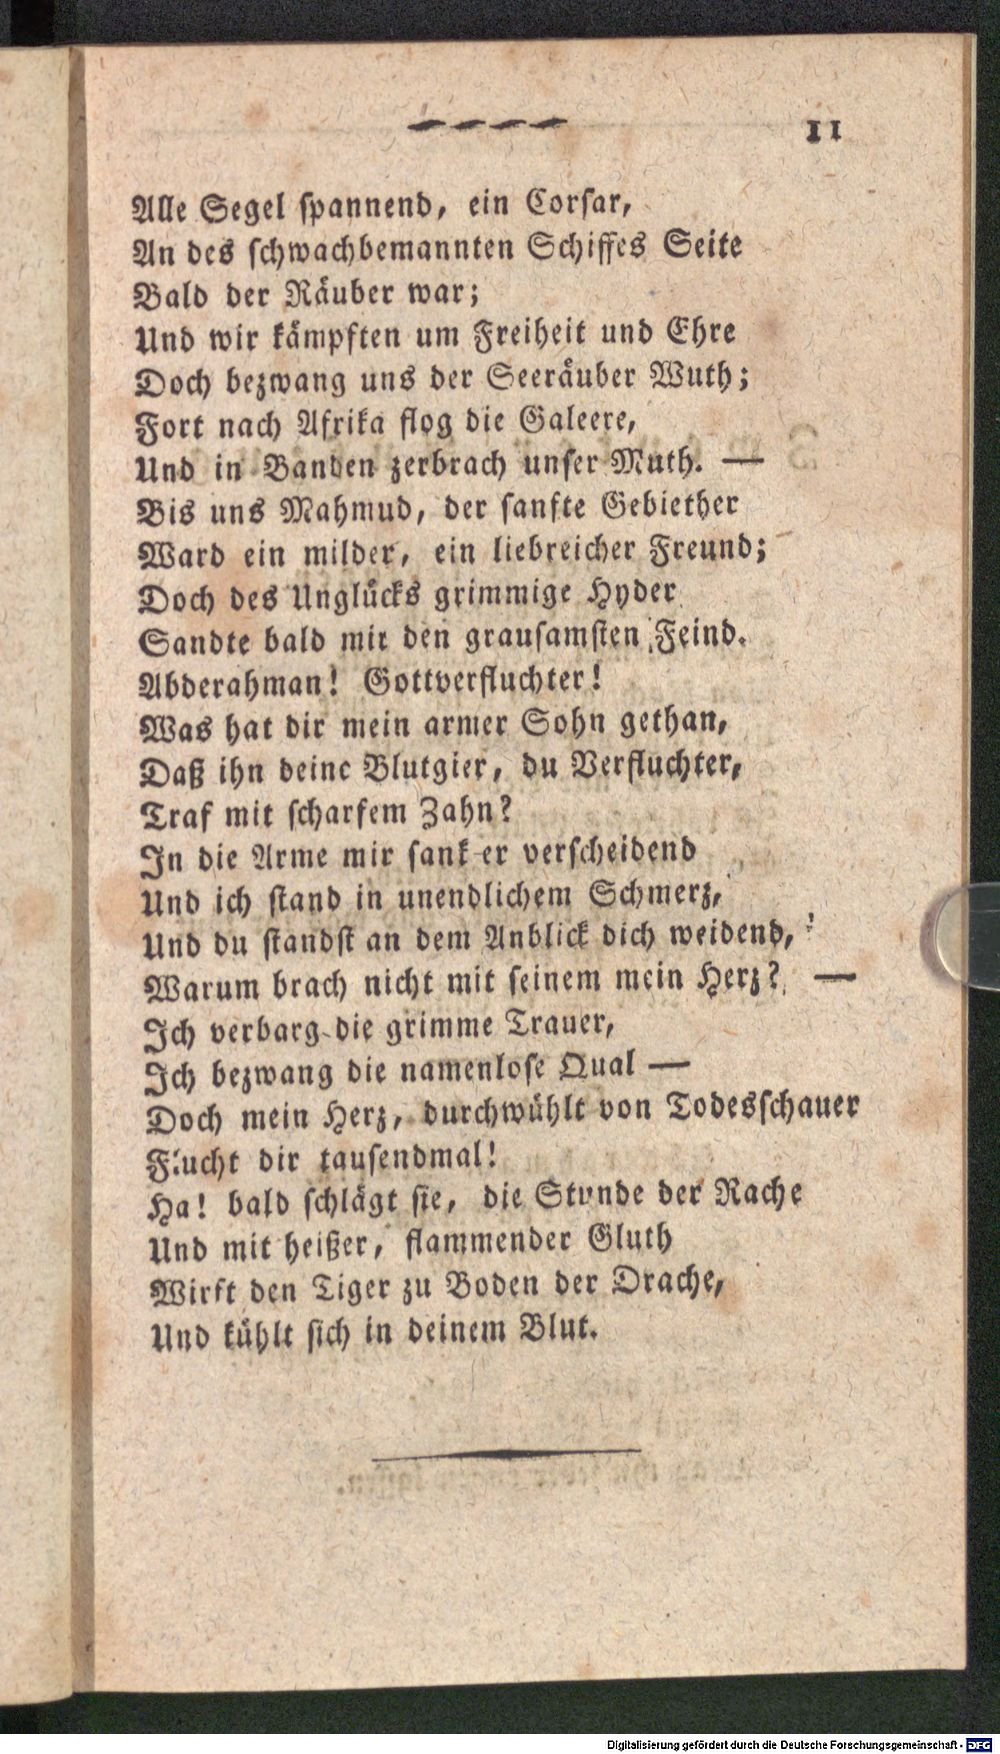 11
Alle Segel spannend, ein Corsar,
An des schwachbemannten Schiffes Seite
Bald der Räuber war;
Und wir kämpften um Freiheit und Ehre
Doch bezwang uns der Seeräuber Wuth;
Fort nach Afrika flog die Galeere,
Und in Banden zerbrach unser Muth. —
Bis uns Mahmud, der sanfte Gebiether
Ward ein milder, ein liebreicher Freund;
Doch des Unglücks grimmige Hyder
Sandte bald mir den grausamsten Feind.
Abderahman! Gottverfluchter!
Was hat dir mein armer Sohn gethan,
Daß ihn deine Blutgier, du Verfluchter,
Traf mit scharfem Zahn?
In die Arme mir sank er verscheidend
Und ich stand in unendlichem Schmerz,
Und du standst an dem Anblick dich weidend,
Warum brach nicht mit seinem mein Herz? —
Ich verbarg die grimme Trauer,
Ich bezwang die namenlose Qual —
Doch mein Herz, durchwühlt von Todesschauer
Flucht dir tausendmal!
Ha! bald schlägt sie, die Stunde der Rache
Und mit heißer, flammender Gluth
Wirft den Tiger zu Boden der Drache,
Und kühlt sich in deinem Blut.
Digitalisierung gefördert durch die Deutsche Forschungsgemeinschaft - DFG